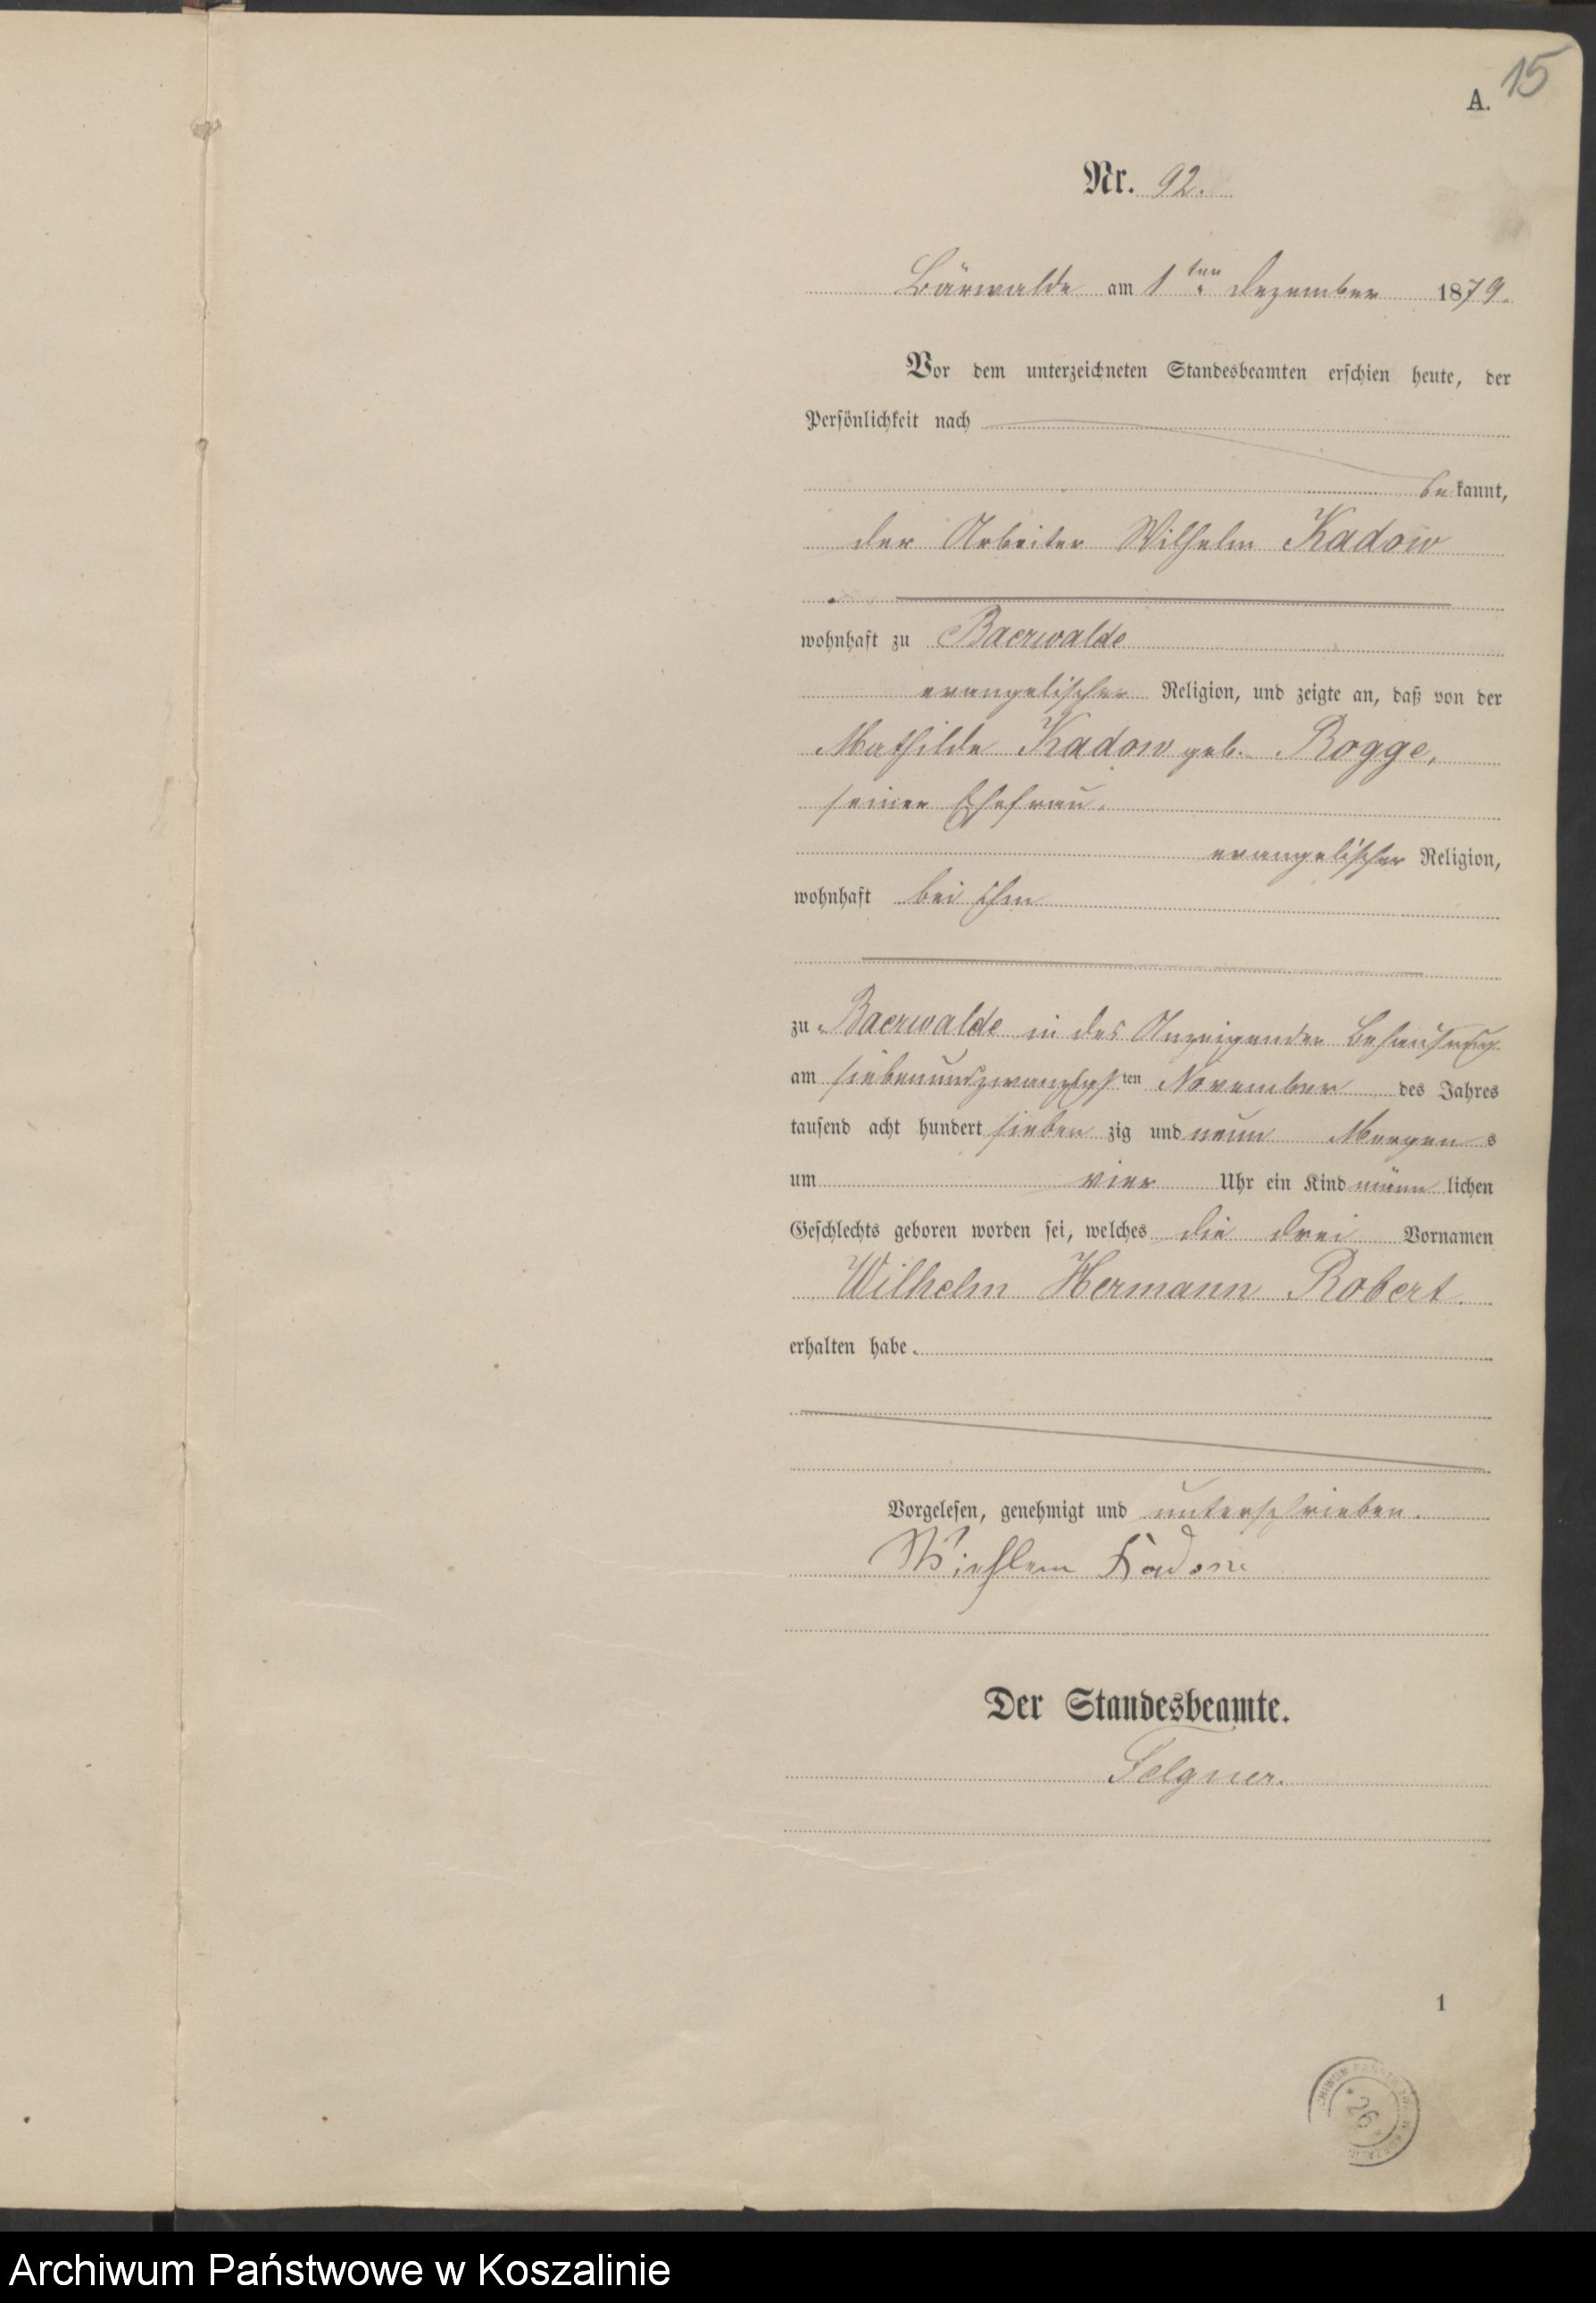 15
A.
Nr. 92.
Bärwalde am 1ten Dezember 1879.
Vor dem unterzeichneten Standesbeamten erschien heute, der
Persönlichkeit nach
bekannt,
der Arbeiter Wilhelm Kadow
wohnhaft zu Baerwalde
evangelischer Religion, und zeigte an, daß von der
Mathilde Kadow geb. Rogge,
seiner Ehefrau,
evangelischer Religion,
wohnhaft bei ihm
zu Baerwalde in des Anzeigenden Behausung
am siebenundzwanzigsten November des Jahres
tausend acht hundert siebenzig und neun Morgens
um vier Uhr ein Kind männlichen
Geschlechts geboren worden sei, welches die drei Vornamen
Wilhelm Hermann Robert
erhalten habe.
Vorgelesen, genehmigt und unterschrieben.
Wiehlem Kadow
Der Standesbeamte.
Felgner.
1
26
Archiwum Państwowe w Koszalinie